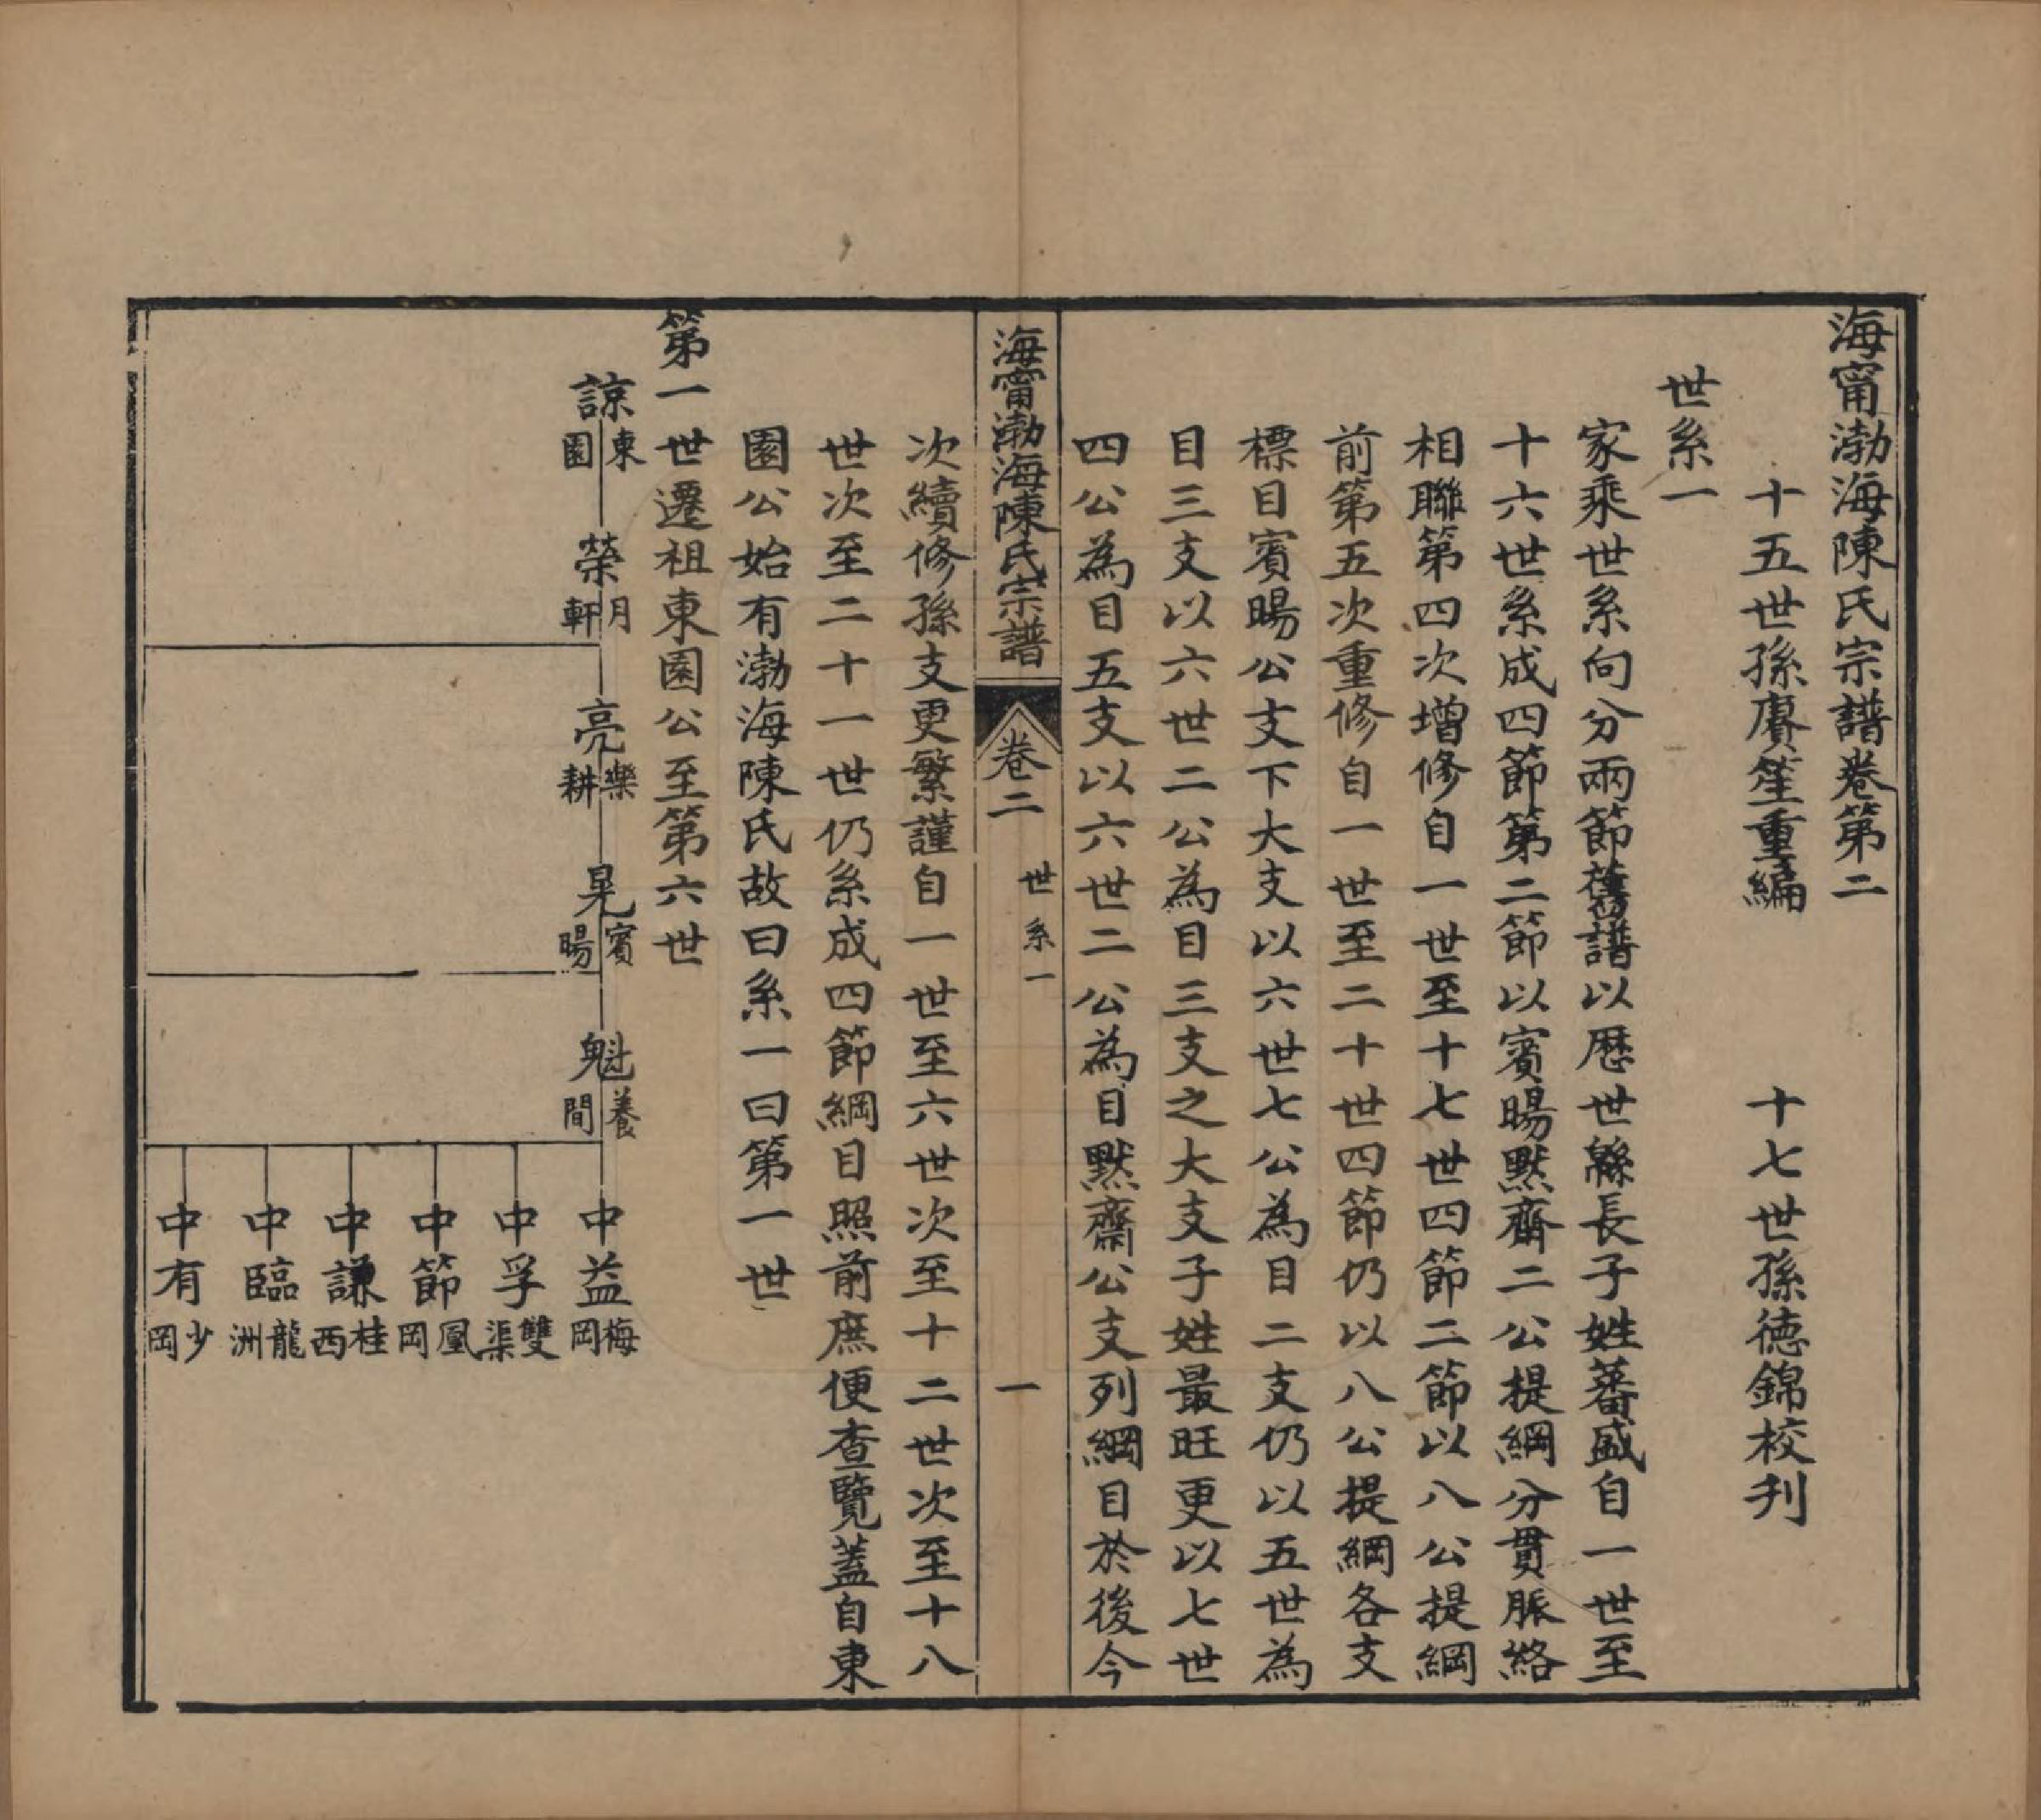 海甯渤海陳氏宗譜卷第二
十五世孫賡笙重編　十七世孫德錦校刋
世系一
家乘世系向分兩節舊譜以歷世緜長子姓蕃盛自一世至
十六世系成四節第二節以賓暘默齋二公提綱分貫脈絡
相聯第四次增修自一世至十七世四節二節以八公提綱
前第五次重修自一世至二十世四節仍以八公提綱各支
標目賓暘公支下大支以六世七公為目二支仍以五世為
目三支以六世二公為目三支之大支子姓最旺更以七世
四公為目五支以六世二公為目默齋公支列綱目於後今
海甯渤海陳氏宗譜　卷二　世系一　一
次續修孫支更繁謹自一世至六世次至十二世次至十八
世次至二十一世仍系成四節綱目照前庶便查覽蓋自東
園公始有渤海陳氏故曰系一曰第一世
第一世遷祖東園公至第六世
諒東園　榮月軒　亮樂耕　晃賓暘　魁養間　中益梅岡
中孚雙渠
中節鳳岡
中謙桂西
中臨龍洲
中有少岡